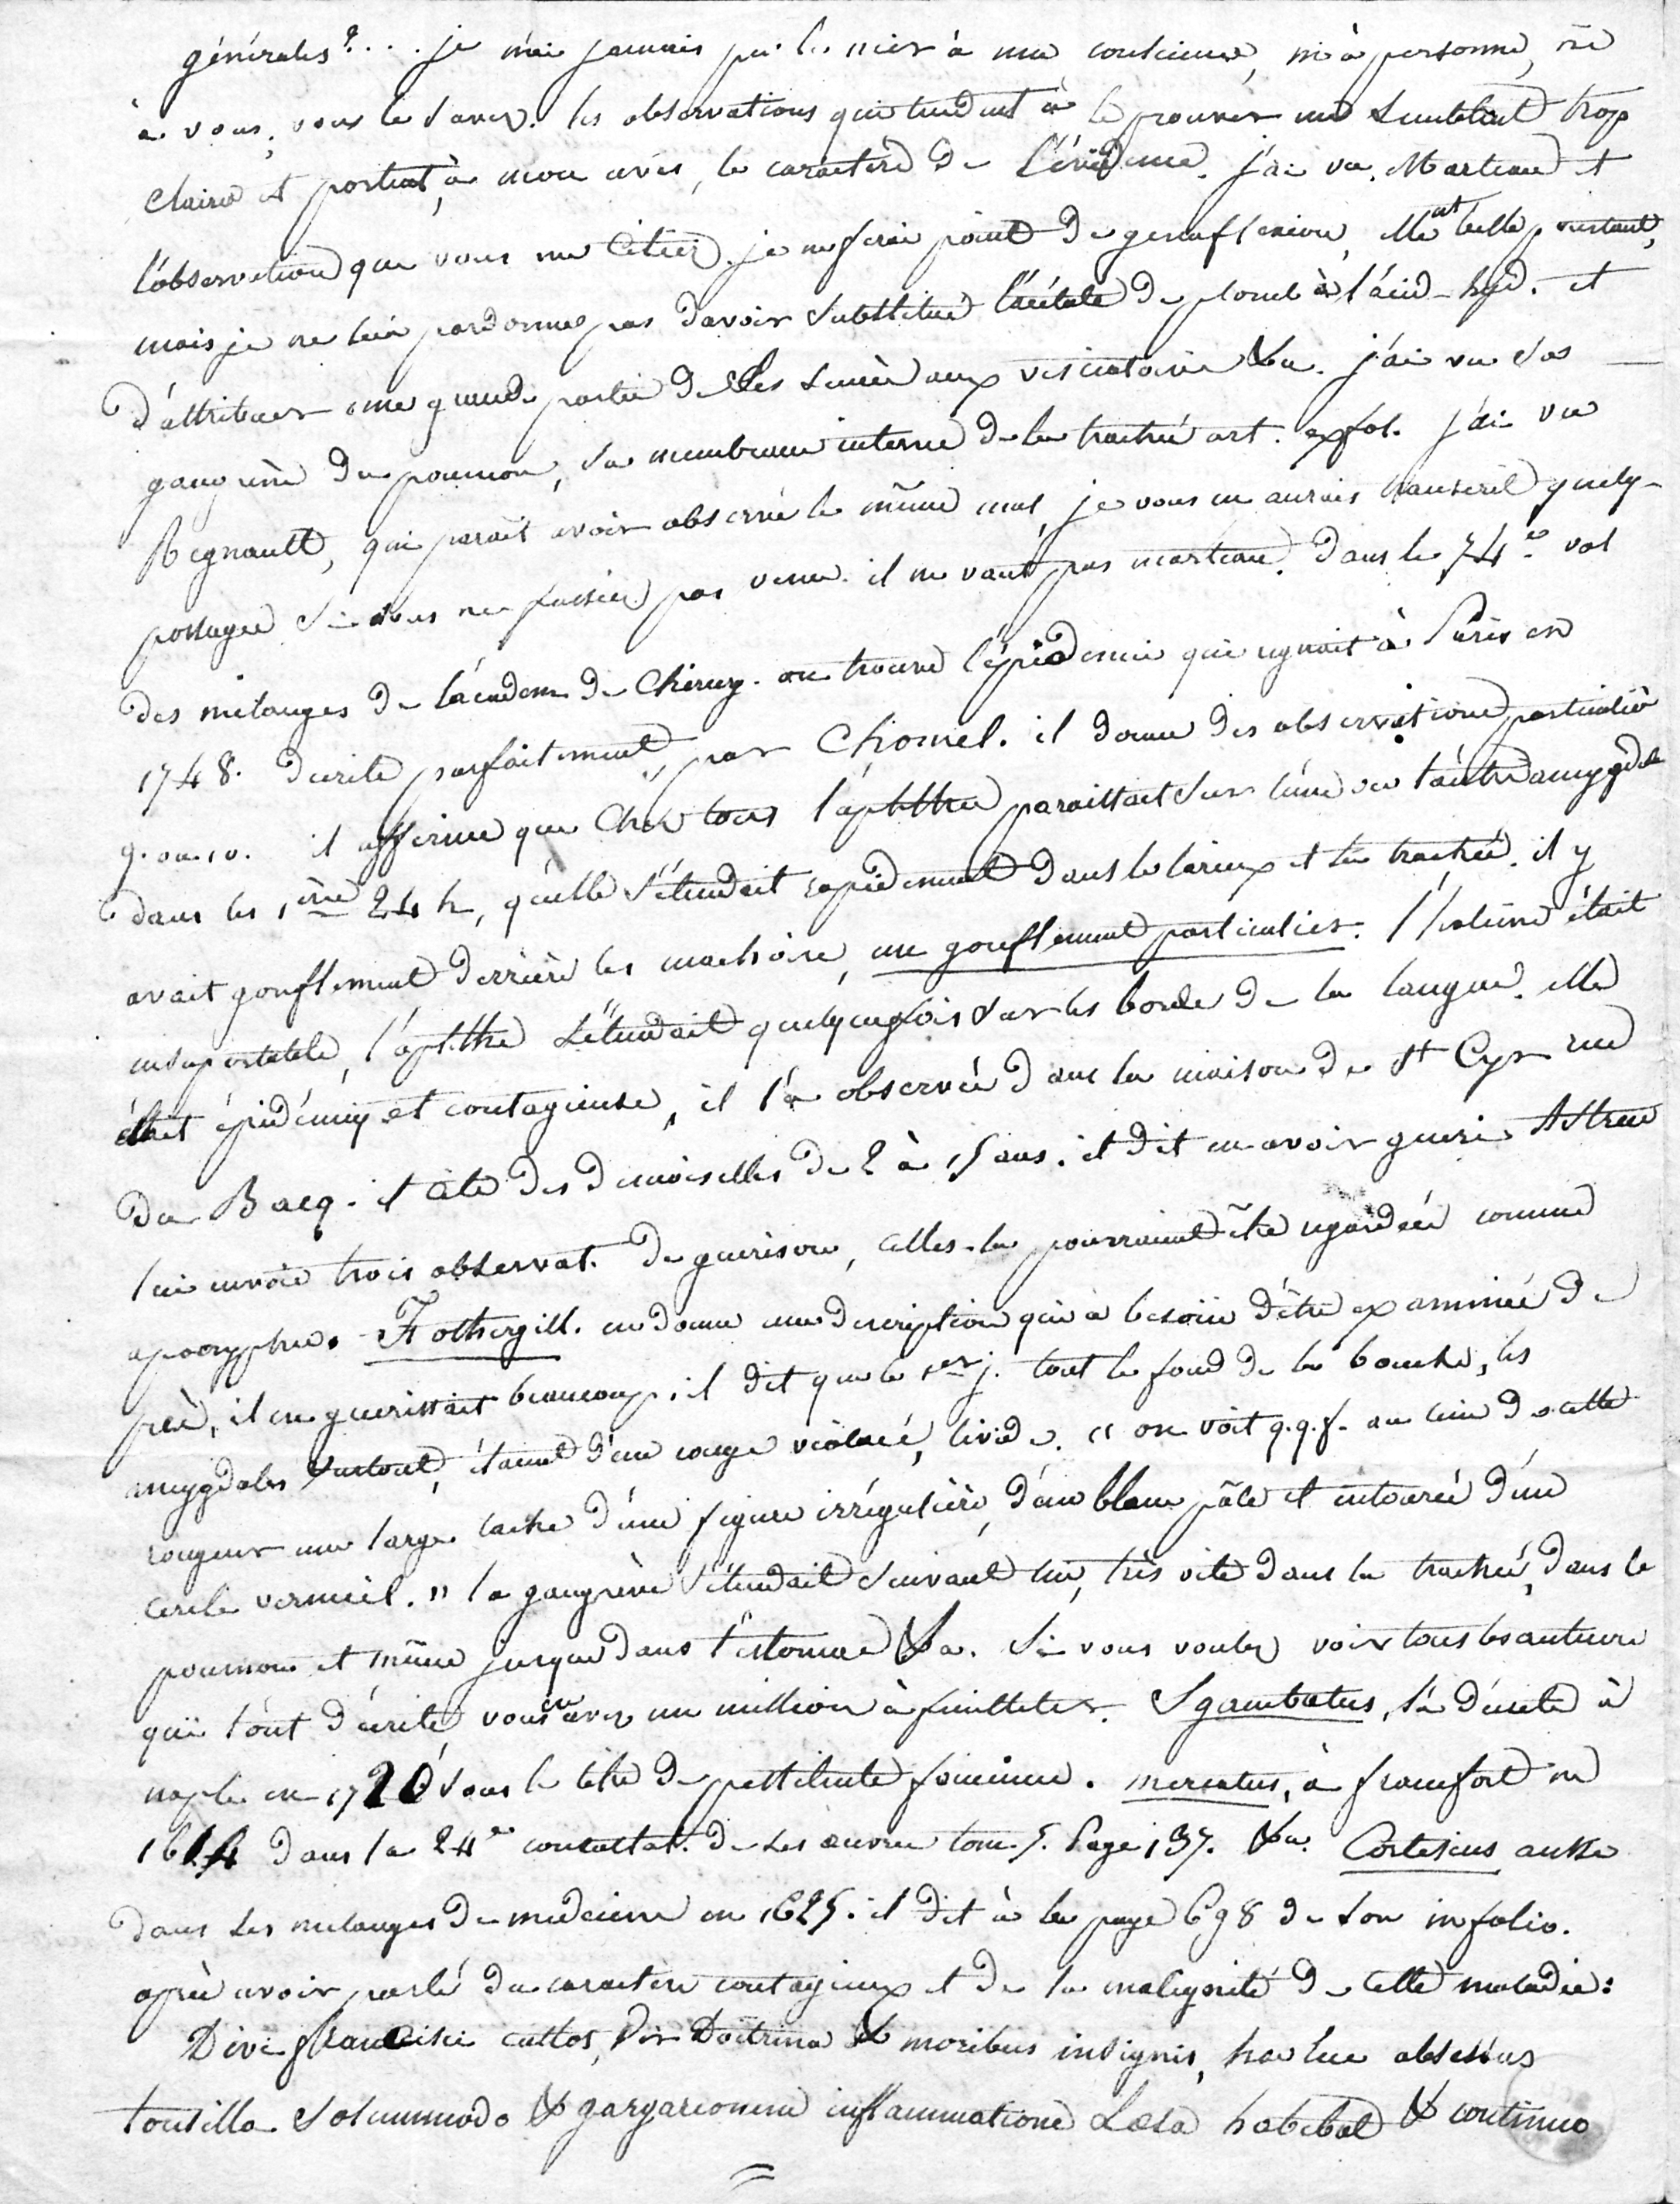 générales?... je n'ai jamais pu le nier à ma conscience, ni à personne, ni
à vous, vous le savez. les observations qui tendent à le prouver me semblent trop
claires et portent, à mon avis, le caractère de l'évidence. j'ai vu Marteau et
l'observation que vous me citiez. je ne ferai point de genuflexion, elle est belle pourtant,
mais je ne lui pardonne pas d'avoir substitué l'acétate de plomb à l'acid-hyd. et
d'attribuer une grande partie de ses succès aux vesicatoires &a. j'ai vu sa
gangrène du poumon, sa membrane interne de la trachée art. exfol. j'ai vu
Regnault, qui parait avoir observé le même mal, je vous en aurais transcrit quelq-
passages si vous ne fussiez pas venu. il ne vaut pas marteau. Dans le 74e vol
des mélanges de l'academ. de Chirurg. on trouve l'épidemie qui regnait à Paris en
1748. decrite parfaitement, par Chomel. il donne des observations particulières
9. ou 10. il affirme que Chez tous l'aphthe paraissait sur l'une ou l'autre amygdale
dans les 1ères 24 h, qu'elle s'étendait rapidement dans le larinx et la trachée. il y
avait gonflement derrière les machoires, un gonflement particulier. l'haleine était
insuportable, l'aphthe s'étendait quelquefois sur les bords de la langue. elle
était épidémiq et contagieuse, il l'a observée dans la maison de St Cyr rue
du Bacq. il cite des demoiselles de 2 à 15 ans. il dit en avoir gueri Astruc
lui envoie trois observat. de guerison, celles-la pourraient être regardées comme
apocryphes. Fothergill. en donne une description qui a besoin d'être examinée de
près, il en guerissait beaucoup. il dit que le 1er j. tout le fond de la bouche, les
amygdales surtout, étaient d'un rouge violacé, livide. " on voit q.q.f. au lieu de cette
rougeur une large tache d'une figure irrégulière, d'un blanc pâle et entourée d'un
cercle vermeil. " la gangrène s'étendait suivant lui, très vite dans la trachée, dans le
poumon et même jusque dans l'estomac &a. Si vous voulez voir tous les auteurs
qui l'ont décrite, vous en avez un million à feuilleter. Sgambatus, l'a décrite à
naples en 1720 sous le titre de pestilente faucium. mercatus, à francfort en
1614 dans la 24e consultat. de ses œuvres tom. 5. Page 137. &a. Cortesius aussi
dans ses melanges de medecine en 1625. il dit à la page 698 de son in folio.
après avoir parlé du caractère contagieux et de la malignité de cette maladie:
Divi francisci custos, vir Doctrina & moribus insignis, hac lue obsessus
tonsilla solummodo & gargareonem inflammatione Læsa habebat & continuo